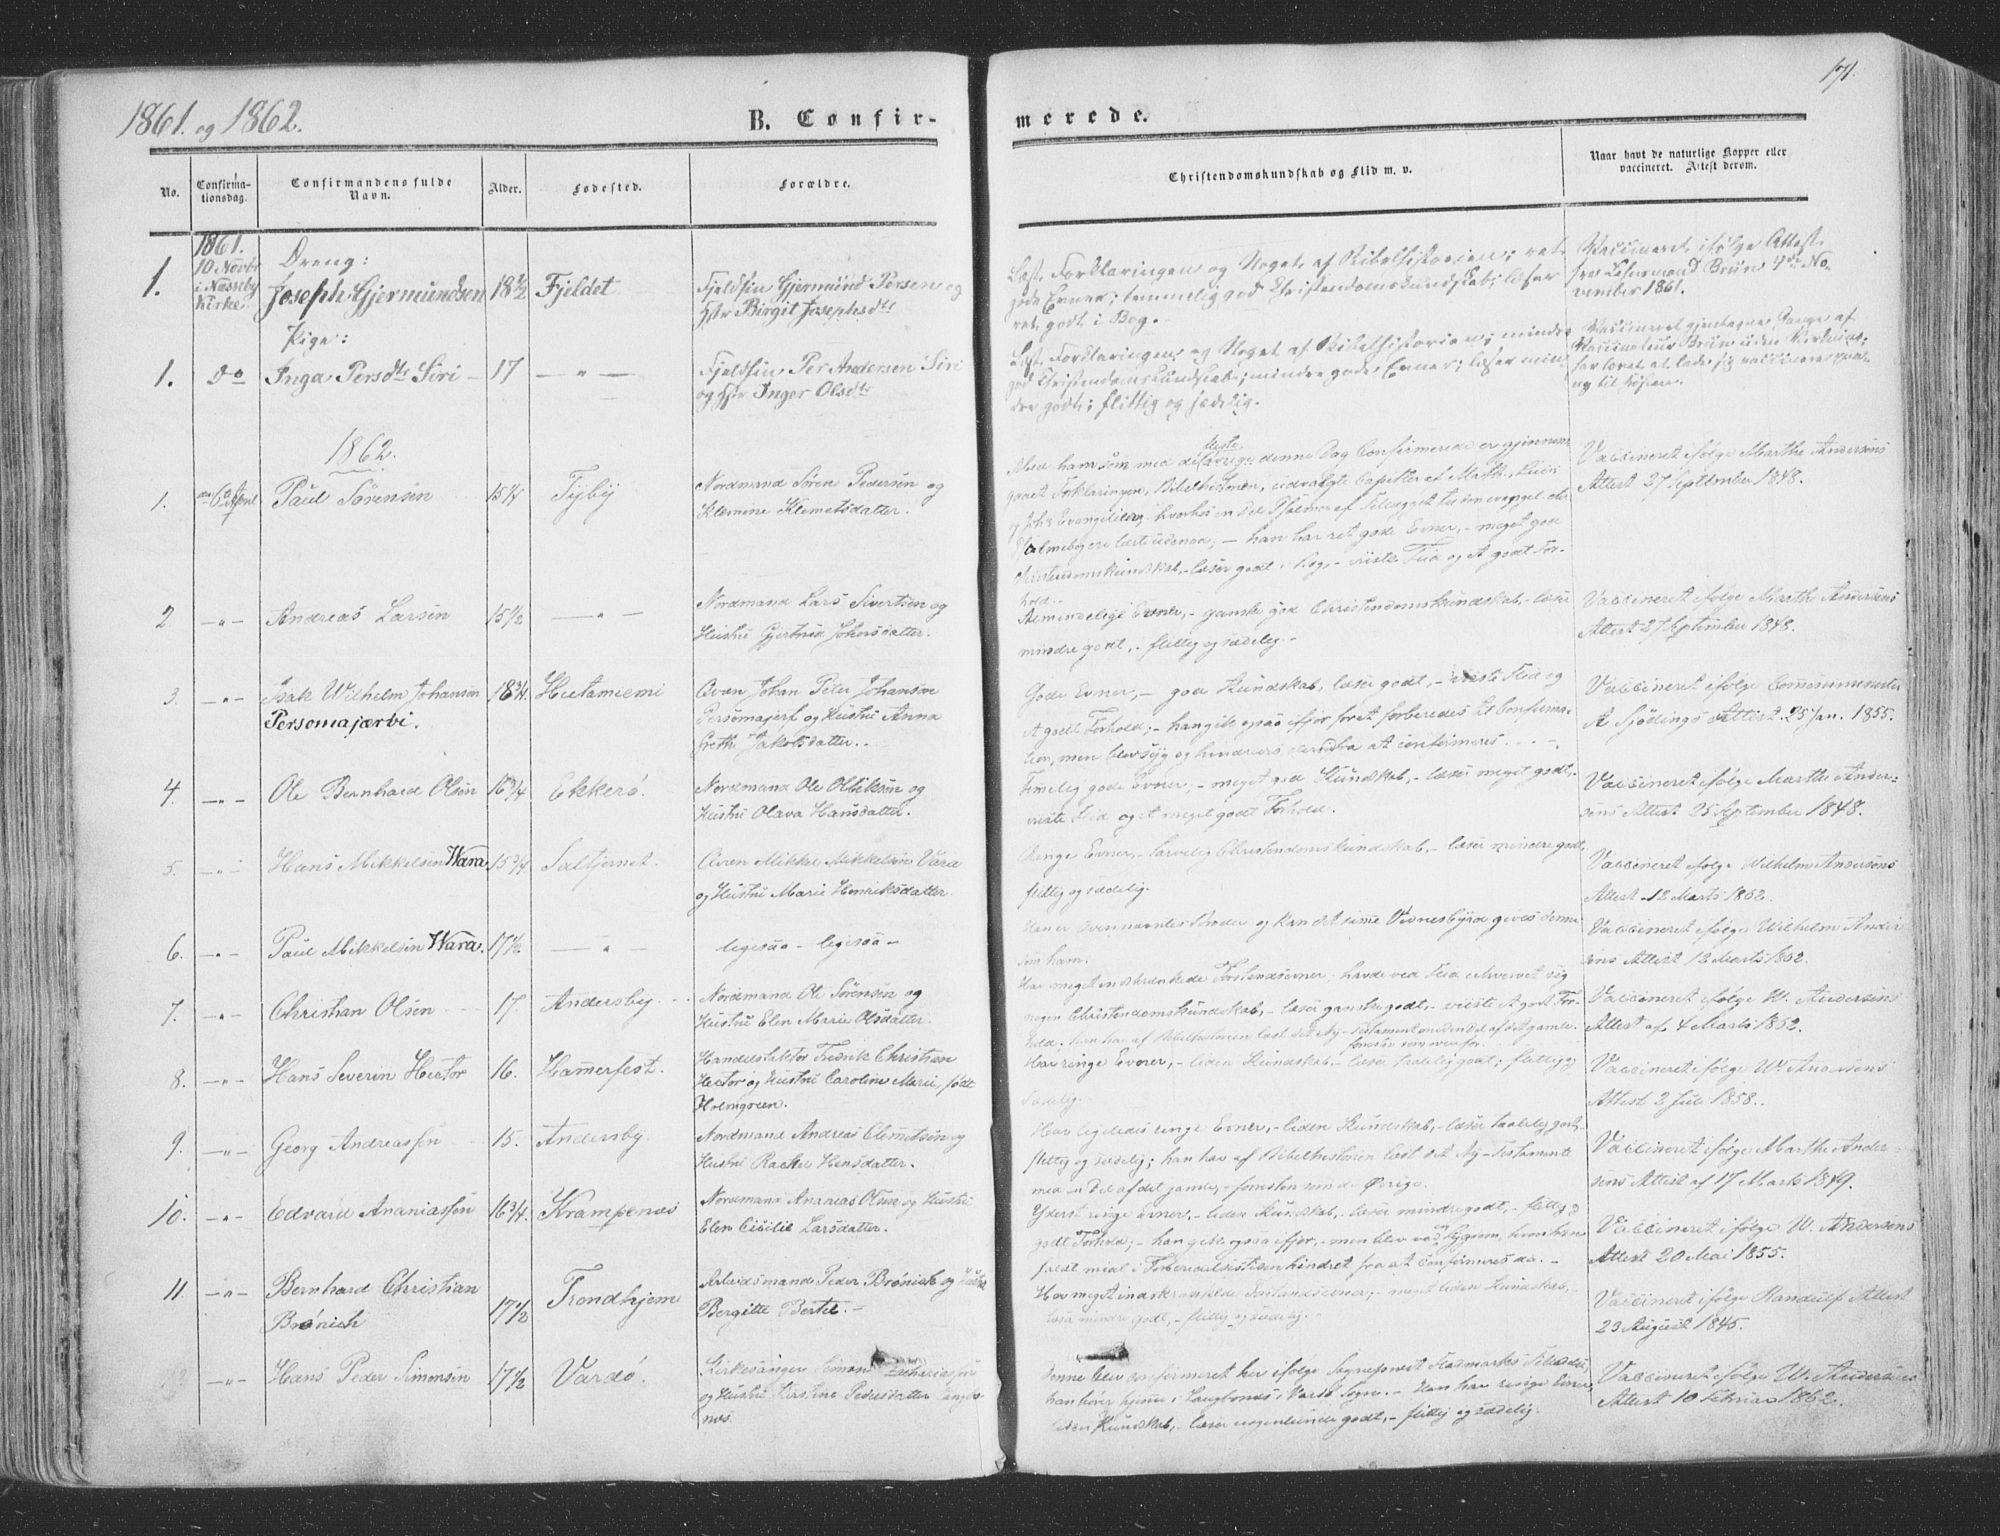 1861. og 1862.
B. Confir-
merede.
171.
No.
Confirma-
tionsdag.
Confirmandens fulde
Navn.
Alder.
Fødested.
Forældre.
Christendomskundskab og Flid m. v.
Naar havt de naturlige Kopper eller
vaccineret. Attest derom.
1861.
10 Novbr
i Næsseby
Kirke.
Dreng:
1. Joseph Gjermundsen 18½ Fjeldet
Fjeldfin Gjermund Persen og
Hstr Birgit Josephsdtr
Læst Forklaringen og Noget af Bibelhistorien; ret
gode Evner; temmelig god Christendomskundskab; læser
ret godt i Bog.
Vaccineret ifølge Attest
fra Lehnsmand Brun 4de No-
vember 1861.
Pige:
1. do Inga Persdtr Siri 17 — " —
Fjeldfin Per Andersen Siri
og Hstr Inger Olsdtr
Læst Forklaringen og Noget af Bibelhistorien; mindre
god Christendomskundskab; mindre gode Evner; læser min-
dre godt; flittig og sædelig.
Vaccineret gjentagne Gange af
Vaccinateur Brun uden Virkning;
har lovet at lade sig vaccinere paa
ny til Høsten.
1862.
1. Paul Sörensen 15¼ Tyby
Nordmand Sören Pedersen og
Klemine Klemetsdatter.
Med ham som med de fleste øvrige denne Dag Confirmerede er gjennem-
gaaet Forklaringen, Bibelhistorien, udvalgte Capitler af Matth., Luc.
og Johs Evangelier, hvorhos en Del Psalmer af
Psalmebogen lært udenad; — han har ret gode Evner, – meget god
Christendomskundskab, – læser godt i Bog, – viiste Flid og et godt For-
hold. –
Vaccineret ifølge Marthe Andersens
Attest 27 September 1848.
2. — " — Andreas Larsen 15½ — " —
Nordmand Lars Sivertsen og
Hustru Gjertrud Johersdatter.
Almindelige Evner, – ganske god Christendomskundskab, – læser
mindre godt, – flittig og sædelig. –
Vaccineret ifølge Marth. Andersens
Attest 27 September 1848.
3. — " — Isak Wilhelm Johansen 18¾.
Persomajærvi.
Hietaniemi
Qvæn Johan Peter Johansen
Persomajerf og Hustru Anna
Grethe Jakobsdatter.
Gode Evner, – god Kundskab, læser godt, – viiste Flid og
et godt Forhold; – han gik ogsaa ifjor for at forberedes til Confirma-
tion, men blev syg og hindredes derfra at confirmeres.
Vaccineret ifølge
A Sjödings Attest 25 Jan. 1855.
4. — " — Ole Bernhard Olsen 16¾ Ekkerö.
Nordmand Ole Olliksen og
Hustru Olava Hansdatter.
Temelig gode Evner, – meget god Kundskab, – læser meget godt, –
viiste Flid og et meget godt Forhold.
Vaccineret ifølge Marthe Ander-
sens Attest 25 September 1848.
5. — " — Hans Mikkelsen Wara 15¾ Saltjernet.
Qvæn Mikkel Mikkelsen Vara
og Hustru Marie Henriksdatter.
Ringe Evner, – tarvelig Christendomskundskab, – læser mindre godt,
flittig og sædelig.
Vaccineret ifølge Wilhelm Andersens
Attest 12 Marts 1862.
6. — " — Paul Mikkelsen Wara. 17½ — " —
ligesaa – ligesaa –
Han er ovennævntes Broder og kan det samme Vidnesbyrd gives denne
som ham.
Vaccineret ifølge Wilhelm Ander
sens Attest 12 Marts 1862.
7. — " — Christian Olsen 17. Andersby.
Nordmand Ole Sörensen og
Hustru Elen Marie Olsdatter.
Har meget indskrænkede Forstandsevner, havde ved Flid erhvervet sig
nogen Christendomskundskab, – læser ganske godt, – viiste et godt For-
hold. Han har af Bibelhistorien læst det Ny-Testamente med en Del af det gamle.
forresten som ovenfor.
Vaccineret ifølge W. Andersens
Attest af 4 Marts 1862.
8. — " — Hans Severin Hector 16. Hamerfest.
Handelsfaktor Fredrik Christian
Hector og Hustru Caroline Marie, født
Holmgreen.
Har ringe Evner, – liden Kundskab, – læser taalelig godt; flittig og
sædelig.
Vaccineret ifølge W. Andersens
Attest 2 Juli 1858.
9. — " — Georg Andreassen 15. Andersby.
Nordmand Andreas Clemetsen og
Hustru Rachel Hansdatter.
Har ligeledes ringe Evner, – liden Kundskab, – læser taalelig godt,
flittig og sædelig; han har af Bibelhistorien læst det Ny-Testamente
med en Del af det gamle, – forresten som de Øvrige.
Vaccineret ifølge Marthe Ander-
sens Attest af 17 Marts 1849.
10. — " — Edvard Ananiassen 16¾. Krampenæs
Nordmand Ananias Olsen og Hustru
Elen Cicilie Larsdatter.
Yderst ringe Evner, – liden Kundskab, – læser mindre godt, – flittig,
godt Forhold; – han gik ogsaa ifjor, – men blev ved Sygdom,
hindret fra at confirmeres da. –
Vaccineret ifølge W. Andersens
Attest 20 Mai 1855.
11. — " — Bernhard Christian
Brönich 17½ Trondhjem
Arbeidsmand Peder Brönich og Hustru
Bergitte Bertel. –
Har meget indskrænkede Forstandsevner, – meget liden Kundskab, –
læser mindre godt, – flittig og sædelig.
Vaccineret ifølge Randulf Attest
23 August 1845.
12 — " — Hans Peder Simonsen 17½ Vardö.
Kirkesanger Simon Zachariassen
og Hustru Kirstine Pedersdatter Lang-
næs.
Denne blev confirmeret her ifølge
han hører hjemme i Langbonæs i Vardö Sogn. – Han har ringe Evner,
liden Kundskab, – læser nogenlunde godt, – flittig og sædelig.
Vaccineret ifølge W. Andersens
Attest 10 Februar 1862.